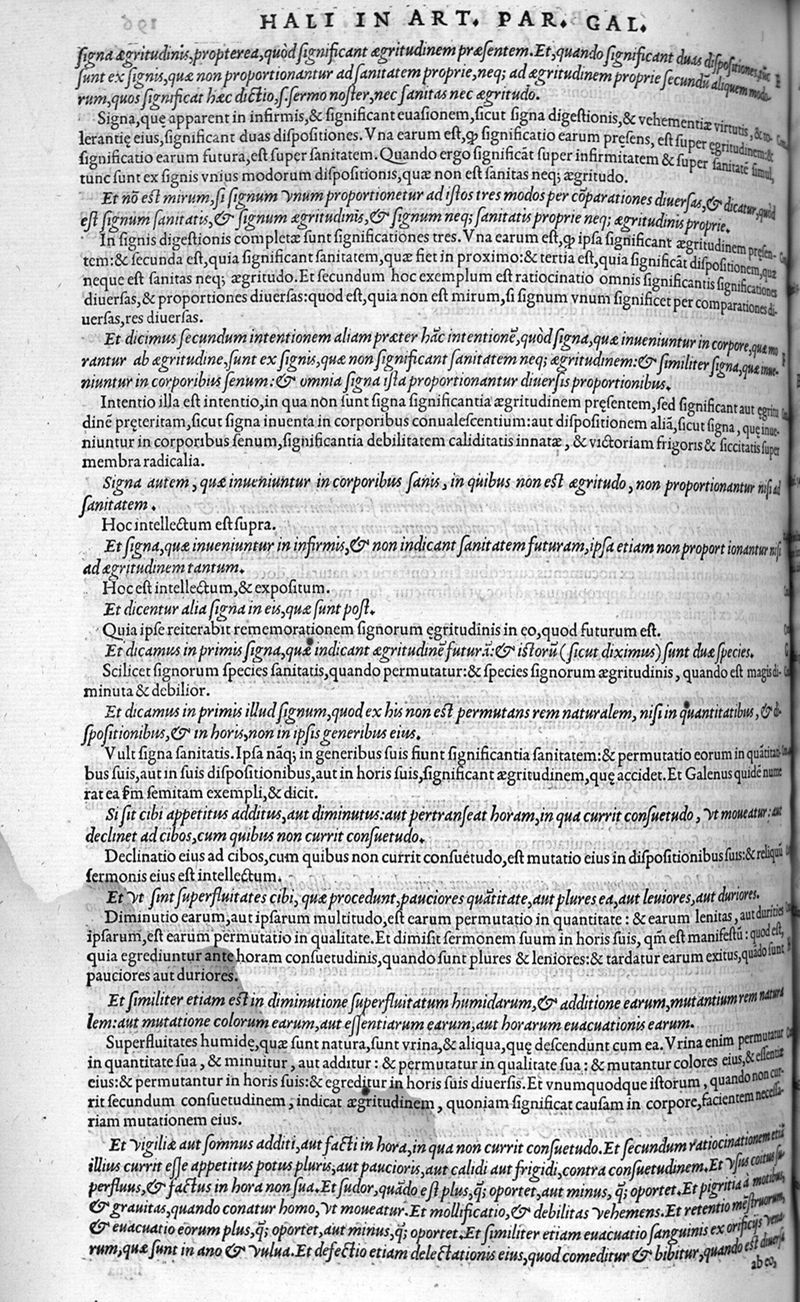 HALI IN ART. PAR. GAL.
signa ægritudinis, propterea, quòd significant ægritudinem præsentem. Et, quando significant duas dispositiones, tũc
sunt ex signis, quæ non proportionantur ad sanitatem proprie, neq; ad ægritudinem proprie secundũ aliquem modo-
rum, quos significat hæc dictio, s. sermo noster, nec sanitas nec ægritudo.
Signa, quę apparent in infirmis, & significant euasionem, sicut signa digestionis, & vehementiæ virtutis, & to-
lerantię eius, significant duas dispositiones. Vna earum est, ꝙ significatio earum pręsens, est super egritudinem: &
significatio earum futura, est super sanitatem. Quando ergo significãt super infirmitatem & super sanitatẽ simul,
tunc sunt ex signis vnius modorum dispositionis, quæ non est sanitas neq; ægritudo.
Et nõ est mirum, si signum vnum proportionetur ad istos tres modos per cõparationes diuersas, & dicatur, quòd
est signum sanitatis, & signum ægritudinis, & signum neq; sanitatis proprie neq; ægritudinis proprie.
In signis digestionis completæ sunt significationes tres. Vna earum est, ꝙ ipsa significant ægritudinem pręsen-
tem: & secunda est, quia significant sanitatem, quæ fiet in proximo: & tertia est, quia significãt dispositionem, quæ
neque est sanitas neq; ægritudo. Et secundum hoc exemplum est ratiocinatio omnis significantis significationes
diuersas, & proportiones diuersas: quod est, quia non est mirum, si signum vnum significet per comparationes di-
uersas, res diuersas.
Et dicimus secundum intentionem aliam præter hãc intentionẽ, quòd signa, quæ inueniuntur in corpore, quæ mo
rantur ab ægritudine, sunt ex signis, quæ non significant sanitatem neq; ægritudinem: & similiter signa, quæ inue-
niuntur in corporibus senum: & omnia signa ista proportionantur diuersis proportionibus.
Intentio illa est intentio, in qua non sunt signa significantia ægritudinem pręsentem, sed significant aut egritu
dinẽ pręteritam, sicut signa inuenta in corporibus conualescentium: aut dispositionem aliã, sicut signa, quę inue-
niuntur in corporibus senum, significantia debilitatem caliditatis innatæ, & victoriam frigoris & siccitatis super
membra radicalia.
Signa autem, quæ inueniuntur in corporibus sanis, in quibus non est ægritudo, non proportionantur nisi ad
sanitatem.
Hoc intellectum est supra.
Et signa, quæ inueniuntur in infirmis, & non indicant sanitatem futuram, ipsa etiam non proportionantur nisi
ad ægritudinem tantum.
Hoc est intellectum, & expositum.
Et dicentur alia signa in eis, quæ sunt post.
Quia ipse reiterabit rememorationem signorum ęgritudinis in eo, quod futurum est.
Et dicamus in primis signa, quæ indicant ægritudinẽ futurã: & istorũ (sicut diximus) sunt duæ species.
Scilicet signorum species sanitatis, quando permutatur: & species signorum ægritudinis, quando est magis di-
minuta & debilior.
Et dicamus in primis illud signum, quod ex his non est permutans rem naturalem, nisi in quantitatibus, & di-
spositionibus, & in horis, non in ipsis generibus eius.
Vult signa sanitatis. Ipsa nãq; in generibus suis fiunt significantia sanitatem: & permutatio eorum in quãtitati-
bus suis, aut in suis dispositionibus, aut in horis suis, significant ægritudinem, quę accidet. Et Galenus quidẽ nume
rat ea fm semitam exempli, & dicit.
Si sit cibi appetitus additus, aut diminutus: aut pertranseat horam, in qua currit consuetudo, vt moueatur: aut
declinet ad cibos, cum quibus non currit consuetudo.
Declinatio eius ad cibos, cum quibus non currit consuetudo, est mutatio eius in dispositionibus suis: & reliquũ
sermonis eius est intellectum.
Et vt sint superfluitates cibi, quæ procedunt, pauciores quãtitate, aut plures ea, aut leuiores, aut duriores.
Diminutio earum, aut ipsarum multitudo, est earum permutatio in quantitate: & earum lenitas, aut durities
ipsarum, est earum permutatio in qualitate. Et dimisit sermonem suum in horis suis, qm̃ est manifestũ: quod est,
quia egrediuntur ante horam consuetudinis, quando sunt plures & leniores: & tardatur earum exitus, quãdo sunt
pauciores aut duriores.
Et similiter etiam est in diminutione superfluitatum humidarum, & additione earum, mutantium rem natura
lem: aut mutatione colorum earum, aut essentiarum earum, aut horarum euacuationis earum.
Superfluitates humidę, quæ sunt natura, sunt vrina, & aliqua, quę descendunt cum ea. Vrina enim permutatur
in quantitate sua, & minuitur, aut additur: & permutatur in qualitate sua: & mutantur colores eius, & essentiæ
eius: & permutantur in horis suis: & egreditur in horis suis diuersis. Et vnumquodque istorum, quando non cur-
rit secundum consuetudinem, indicat ægritudinem, quoniam significat causam in corpore, facientem necessa-
riam mutationem eius.
Et vigiliæ aut somnus additi, aut facti in hora, in qua non currit consuetudo. Et secundum ratiocinationem etiã
illius currit esse appetitus potus pluris, aut paucioris, aut calidi aut frigidi, contra consuetudinem. Et vsus coitus su-
perfluus, & factus in hora non sua. Et sudor, quãdo est plus, q̃; oportet, aut minus, q̃; oportet. Et pigritia à motibus,
& grauitas, quando conatur homo, vt moueatur. Et mollificatio, & debilitas vehemens. Et retentio mẽstruorum,
& euacuatio eorum plus, q̃; oportet, aut minus, q̃; oportet. Et similiter etiam euacuatio sanguinis ex orificijs vena
rum, quæ sunt in ano & vulua. Et defectio etiam delectationis eius, quod comeditur & bibitur, quando est diuersa
ab eo,